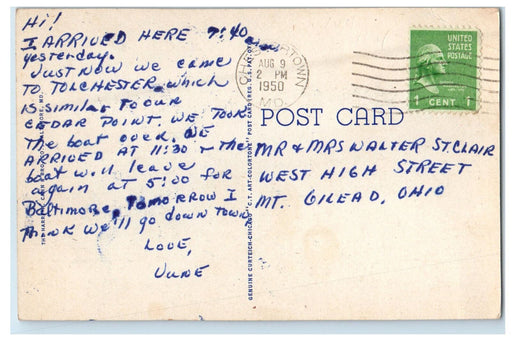 Hi!
I ARRIVED HERE 7:40
yesterday.
JUST NOW WE CAME
TO TOLCHESTER, which
IS SIMILAR TO OUR
CEDAR POINT. WE TOOK
The boat over. WE
ARRIVED AT 11:30 & The
boat will leave
again AT 5:00 FOR
BALTIMORE. TOMORROW I
Think WE'll go down TOWN
LOVE,
JUNE
GENUINE CURTEICH-CHICAGO "C.T. ART-COLORTONE" POST CARD
AUG 9
2 PM
1950
MD.
UNITED
STATES
POSTAGE
1 CENT 1
POST CARD
MR & MRS WALTER ST CLAIR
WEST HIGH STREET
MT. GILEAD, OHIO